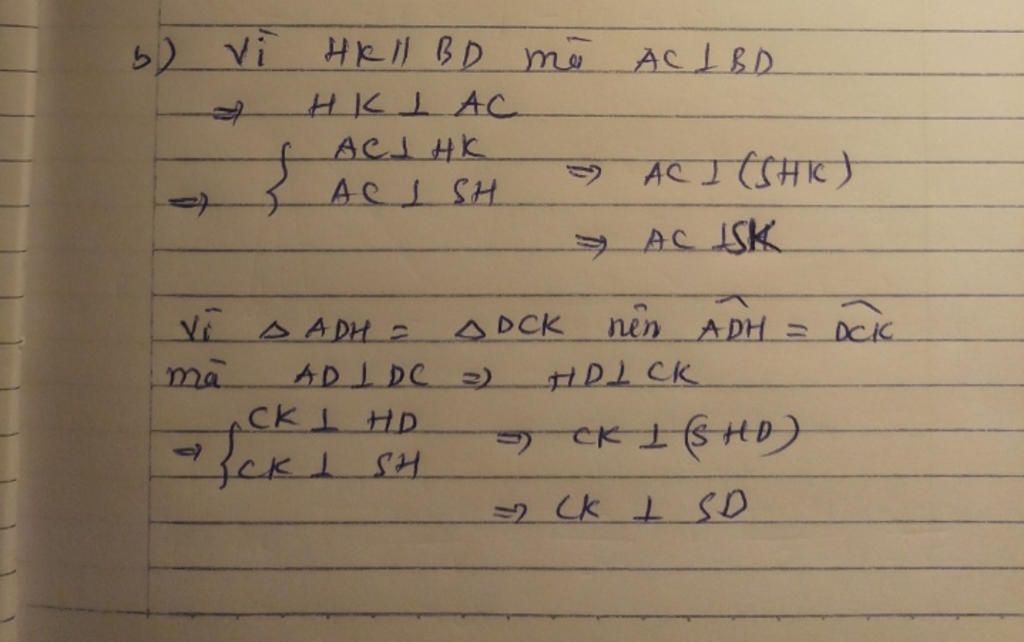 b) Vì HK // BD mà AC ⊥ BD
⇒ HK ⊥ AC
⇒ { AC ⊥ HK
AC ⊥ SH ⇒ AC ⊥ (SHK)
⇒ AC ⊥ SK
Vì △ ADH = △ DCK nên \widehat{ADH} = \widehat{DCK}
mà AD ⊥ DC ⇒ HD ⊥ CK
⇒ { CK ⊥ HD
CK ⊥ SH ⇒ CK ⊥ (SHD)
⇒ CK ⊥ SD